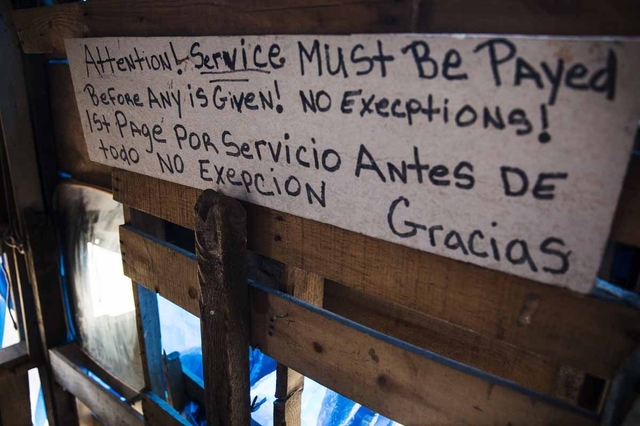 Attention! Service Must Be Payed
Before Any is Given! No Execptions!
1st Page por Servicio Antes De
todo No Exepcion
Gracias